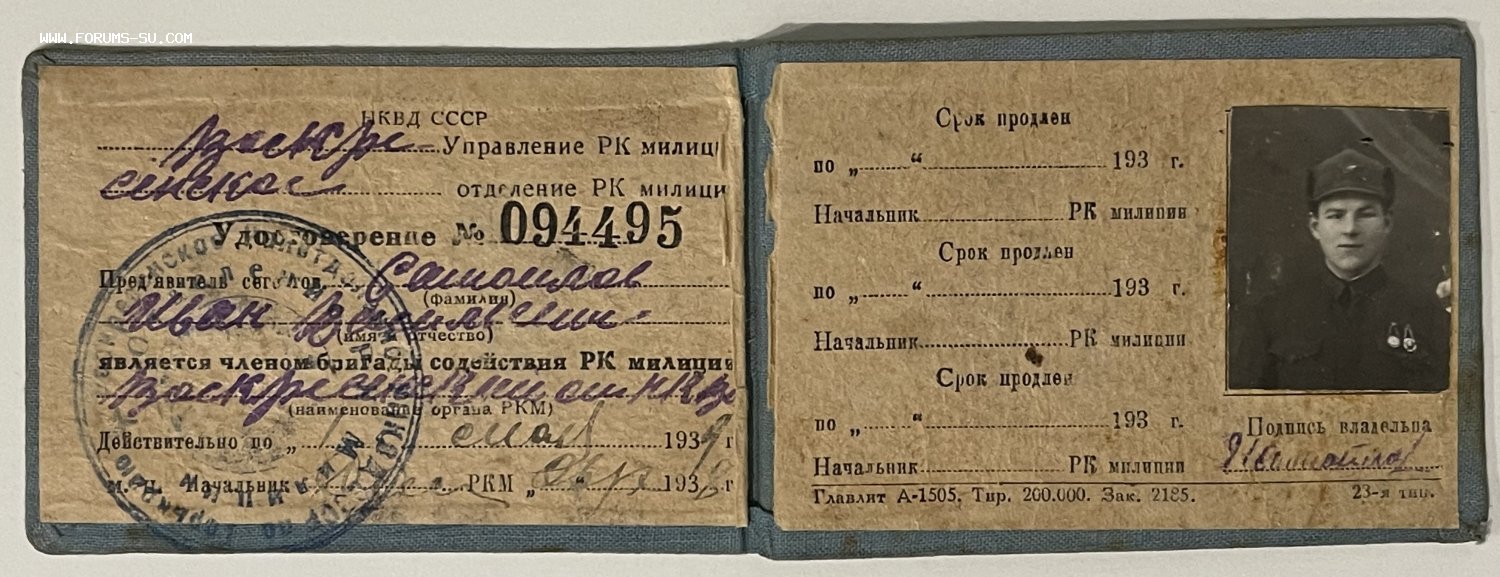 WWW.FORUMS-SU.COM
НКВД СССР
Воскре Управление РК милици
сенское отделение РК милици
Удостоверение № 094495
Пред'явитель сего тов. Самойлов
(фамилия)
Иван Васильевич
(имя и отчество)
является членом бригады содействия РК милиции
Воскресенский
(наименование органа РКМ)
Действительно по „1 мая 1939 г
м. п. Начальник РКМ „ “ 193 г
Срок продлен
по „ “ 193 г.
Начальник РК милиции
Срок продлен
по „ “ 193 г.
Начальник РК милиции
Срок продлен
по „ “ 193 г.
Начальник РК милиции
Подпись владельца
Самойлов
Главлит А-1505. Тир. 200.000. Зак. 2185.
23-я тип.